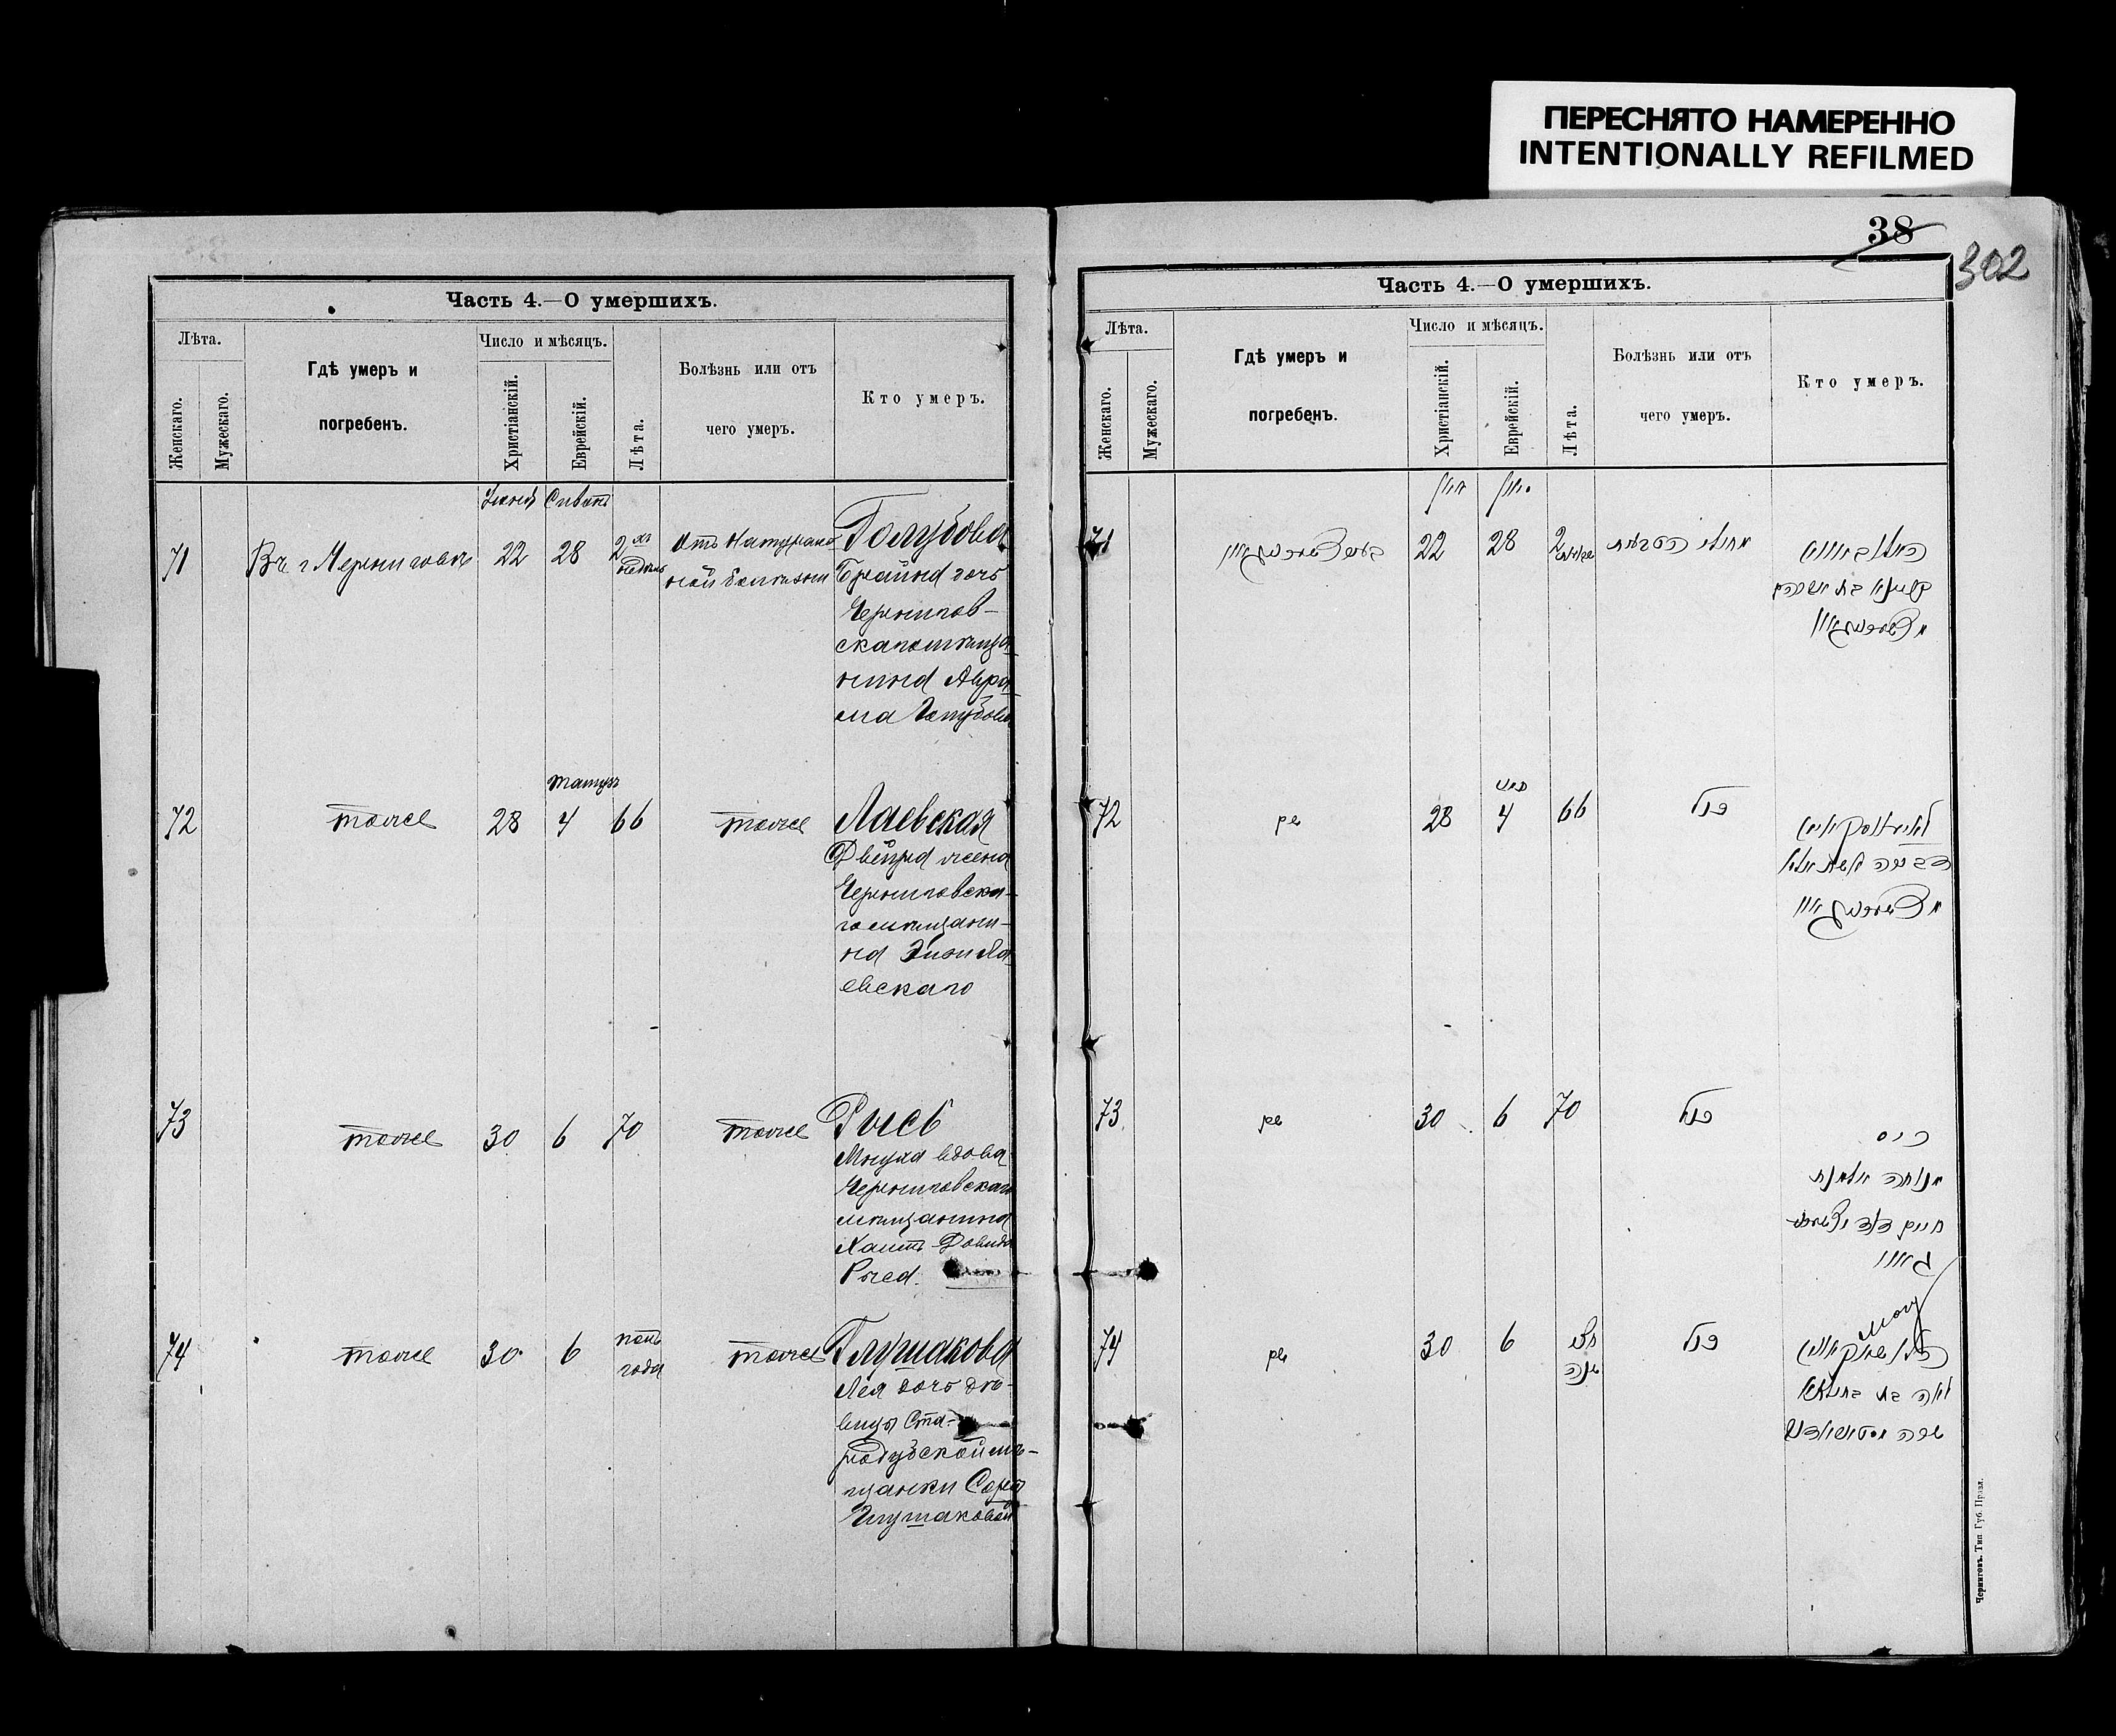 ПЕРЕСНЯТО НАМЕРЕННО
INTENTIONALLY REFILMED
38
302
Часть 4.—О умершихъ.
Лѣта.
Женскаго.
Мужескаго.
Гдѣ умеръ и
погребенъ.
Число и мѣсяцъ.
Христіанскій.
Еврейскій.
Лѣта.
Болѣзнь или отъ
чего умеръ.
Кто умеръ.
Іюнь Сиванъ
71 Въ г Черниговѣ 22 28 2хъ недѣль
Отъ натураль
ной болѣзни
Голубова
Брайна дочь
Чернигов-
скаго мѣща-
нина Авра-
ма Голубова
Тамузъ
72 тоже 28 4 66 тоже
Лаевская
Двейра жена
Черниговска-
го мѣщани-
на Эли Ла-
евскаго
73 тоже 30 6 70 тоже
Рысь
Мнуха вдова
Черниговскаго
мѣщанина
Хаимъ Довида
74 тоже 30 6 полъ года тоже
Глушакова
Лея дочь дѣ-
вицы Ста-
родубской мѣ-
щанки Соры
Глушаковой
Часть 4.—О умершихъ.
Лѣта.
Женскаго.
Мужескаго.
Гдѣ умеръ и
погребенъ.
Число и мѣсяцъ.
Христіанскій.
Еврейскій.
Лѣта.
Болѣзнь или отъ
чего умеръ.
Кто умеръ.
יוני סיון
71 22 28 2
72 שם 28 4 66 כנל
73 שם 30 6 70 כנל
ריס
מנוחה אלמנת
חיים דוד
74 שם 30 6 חצי שנה כנל
לאה בת
שרה
Черниговъ. Тип. Губ. Правл.